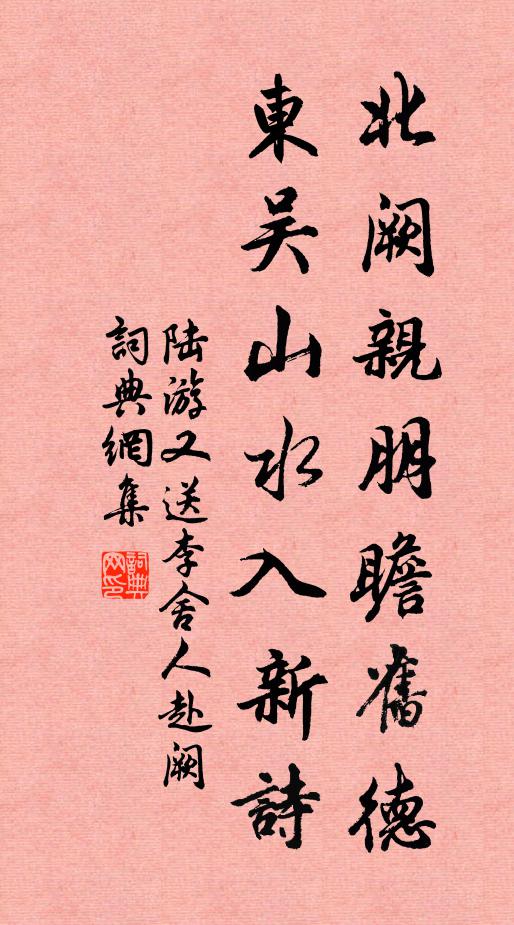 北阙親朋瞻舊德
東吴山水入新詩
陆游又送李舍人赴阙
詞典網集
詞典網印